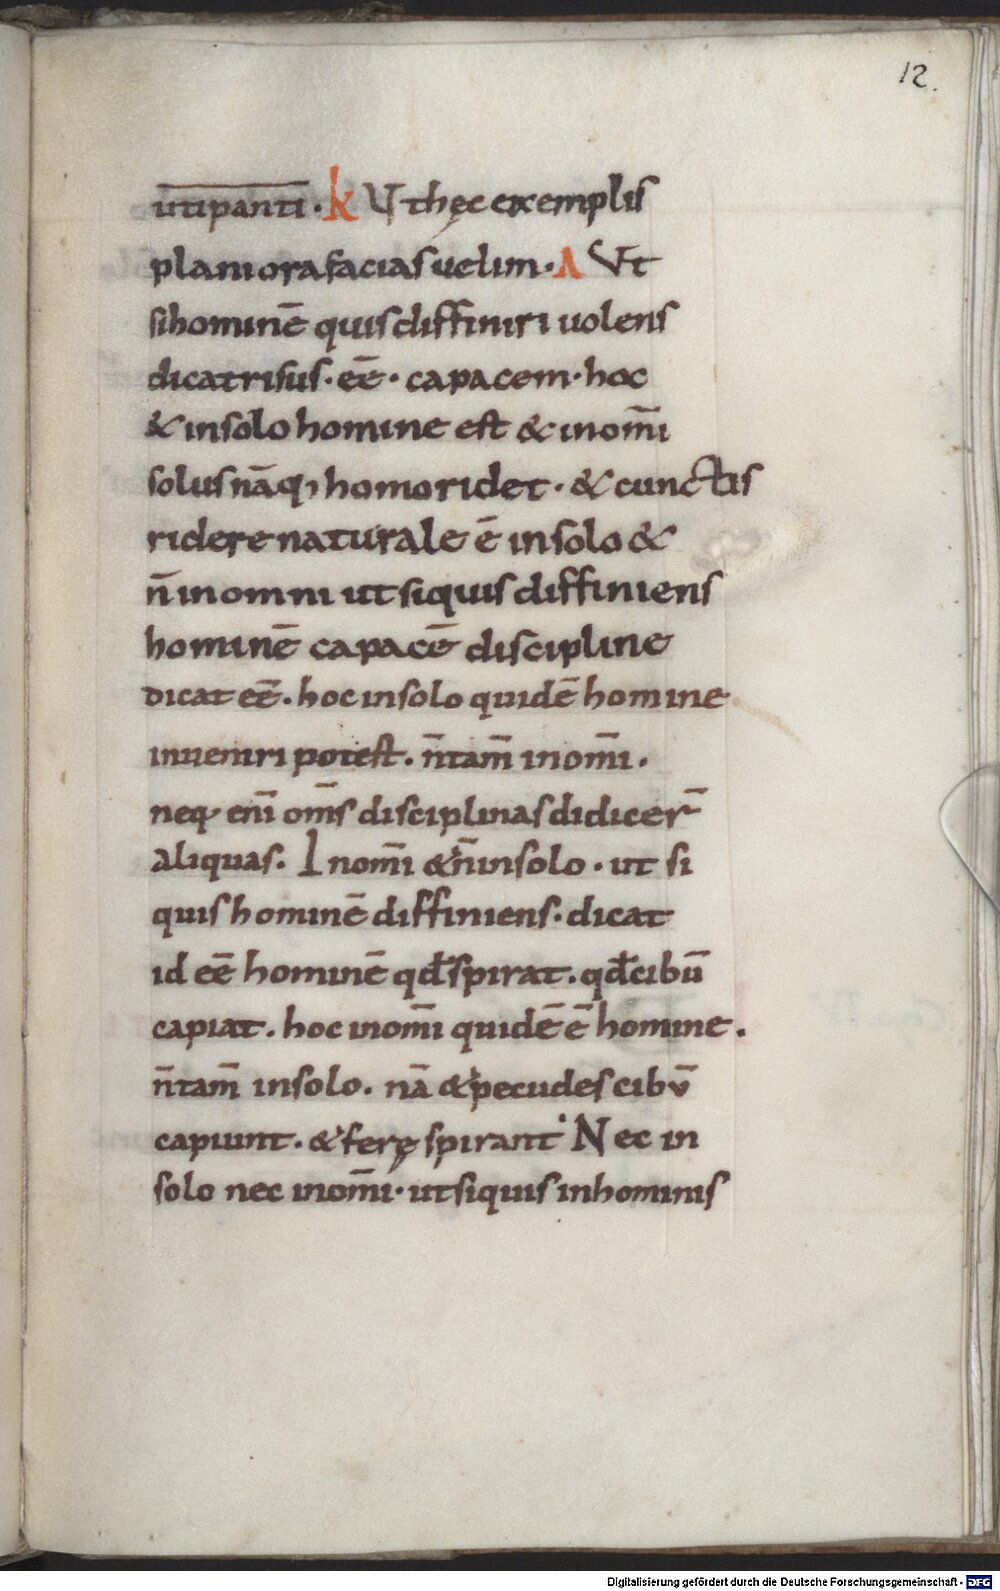 12.
utipanti · k Ut hęc exemplis
planiora facias uelim · A Ut
si hominē quis diffiniri uolens
dicat risus · eē · capacem · hoc
& in solo homine est & in om̄i
solus nāq; homo ridet · & cunctis
ridere naturale ē in solo &
n̄ in omni ut si quis diffiniens
hominē capacē discipline
dicat eē · hoc in solo quidē homine
inueniri potest · n̄ tam̄ in om̄i ·
neq· eni̅ om̄s disciplinas didicer̄
aliquas · In om̄i & n̄ in solo · ut si
quis hominē diffiniens · dicat
id eē hominē qđ spirat · qđ cibū
capiat · hoc in om̄i quidē ē homine ·
n̄ tam̄ in solo · nā & pecudes cibv̄
capiunt · & ferę spirant · Nec in
solo nec in om̄i · ut si quis in hominis
Digitalisierung gefördert durch die Deutsche Forschungsgemeinschaft - DFG